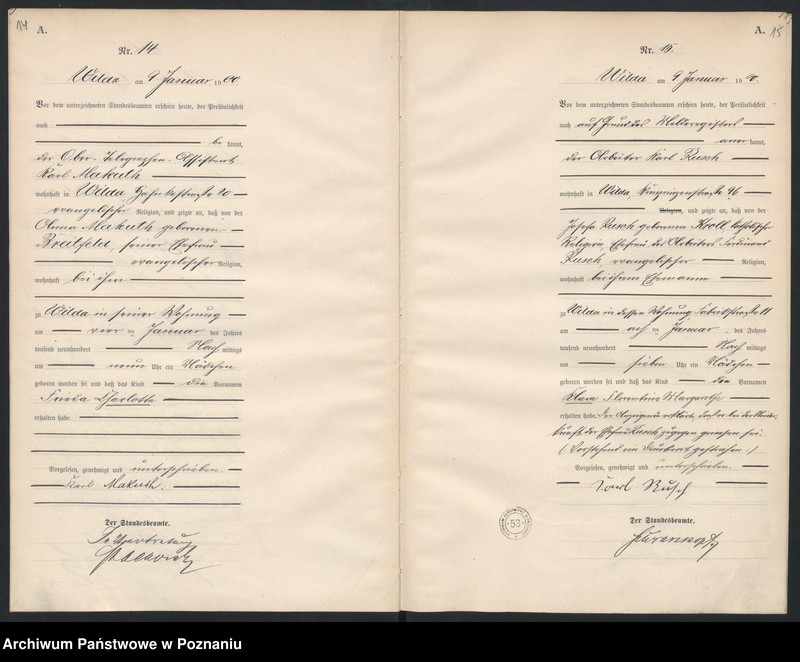 14
A.
Nr. 14.
Wilda am 9 Januar 1900.
Vor dem unterzeichneten Standesbeamten erschien heute, der Persönlichkeit
nach
be kannt,
der Ober-Telegraphen-Assistent
Karl Makuth
wohnhaft in Wilda,
evangelischer Religion, und zeigte an, daß von der
Anna Makuth geborenen
Breitfeld, seiner Ehefrau
evangelischer Religion,
wohnhaft bei ihm
zu Wilda in seiner Wohnung
am vier ten Januar des Jahres
tausend neunhundert Nach mittags
um neun Uhr ein Mädchen
geboren worden sei und daß das Kind die Vornamen
Frieda Charlotte
erhalten habe.
Vorgelesen, genehmigt und unterschrieben.
Karl Makuth.
Der Standesbeamte.
In Vertretung
A. 15
Nr. 15.
Wilda am 9 Januar 1900.
Vor dem unterzeichneten Standesbeamten erschien heute, der Persönlichkeit
nach auf Grund des Melderegisters
aner kannt,
der Arbeiter Karl Rusch
wohnhaft in Wilda, 46
Religion, und zeigte an, daß von der
Josefa Rusch geborenen Kroll, katholischer
Religion, Ehefrau des Arbeiters Ferdinand
Rusch evangelischer Religion,
wohnhaft bei ihrem Ehemanne
zu Wilda in dessen Wohnung Fabrikstraße 11
am ach ten Januar des Jahres
tausend neunhundert Nach mittags
um sieben Uhr ein Mädchen
geboren worden sei und daß das Kind die Vornamen
Klara Florentine Margarethe
erhalten habe. Der Anzeigende erklärte, daß er bei der Nieder-
kunft der Ehefrau Rusch zugegen gewesen sei.
(Vorstehend ein Druckwort gestrichen.)
Vorgelesen, genehmigt und unterschrieben.
Karl Rusch
Der Standesbeamte.
53
Archiwum Państwowe w Poznaniu